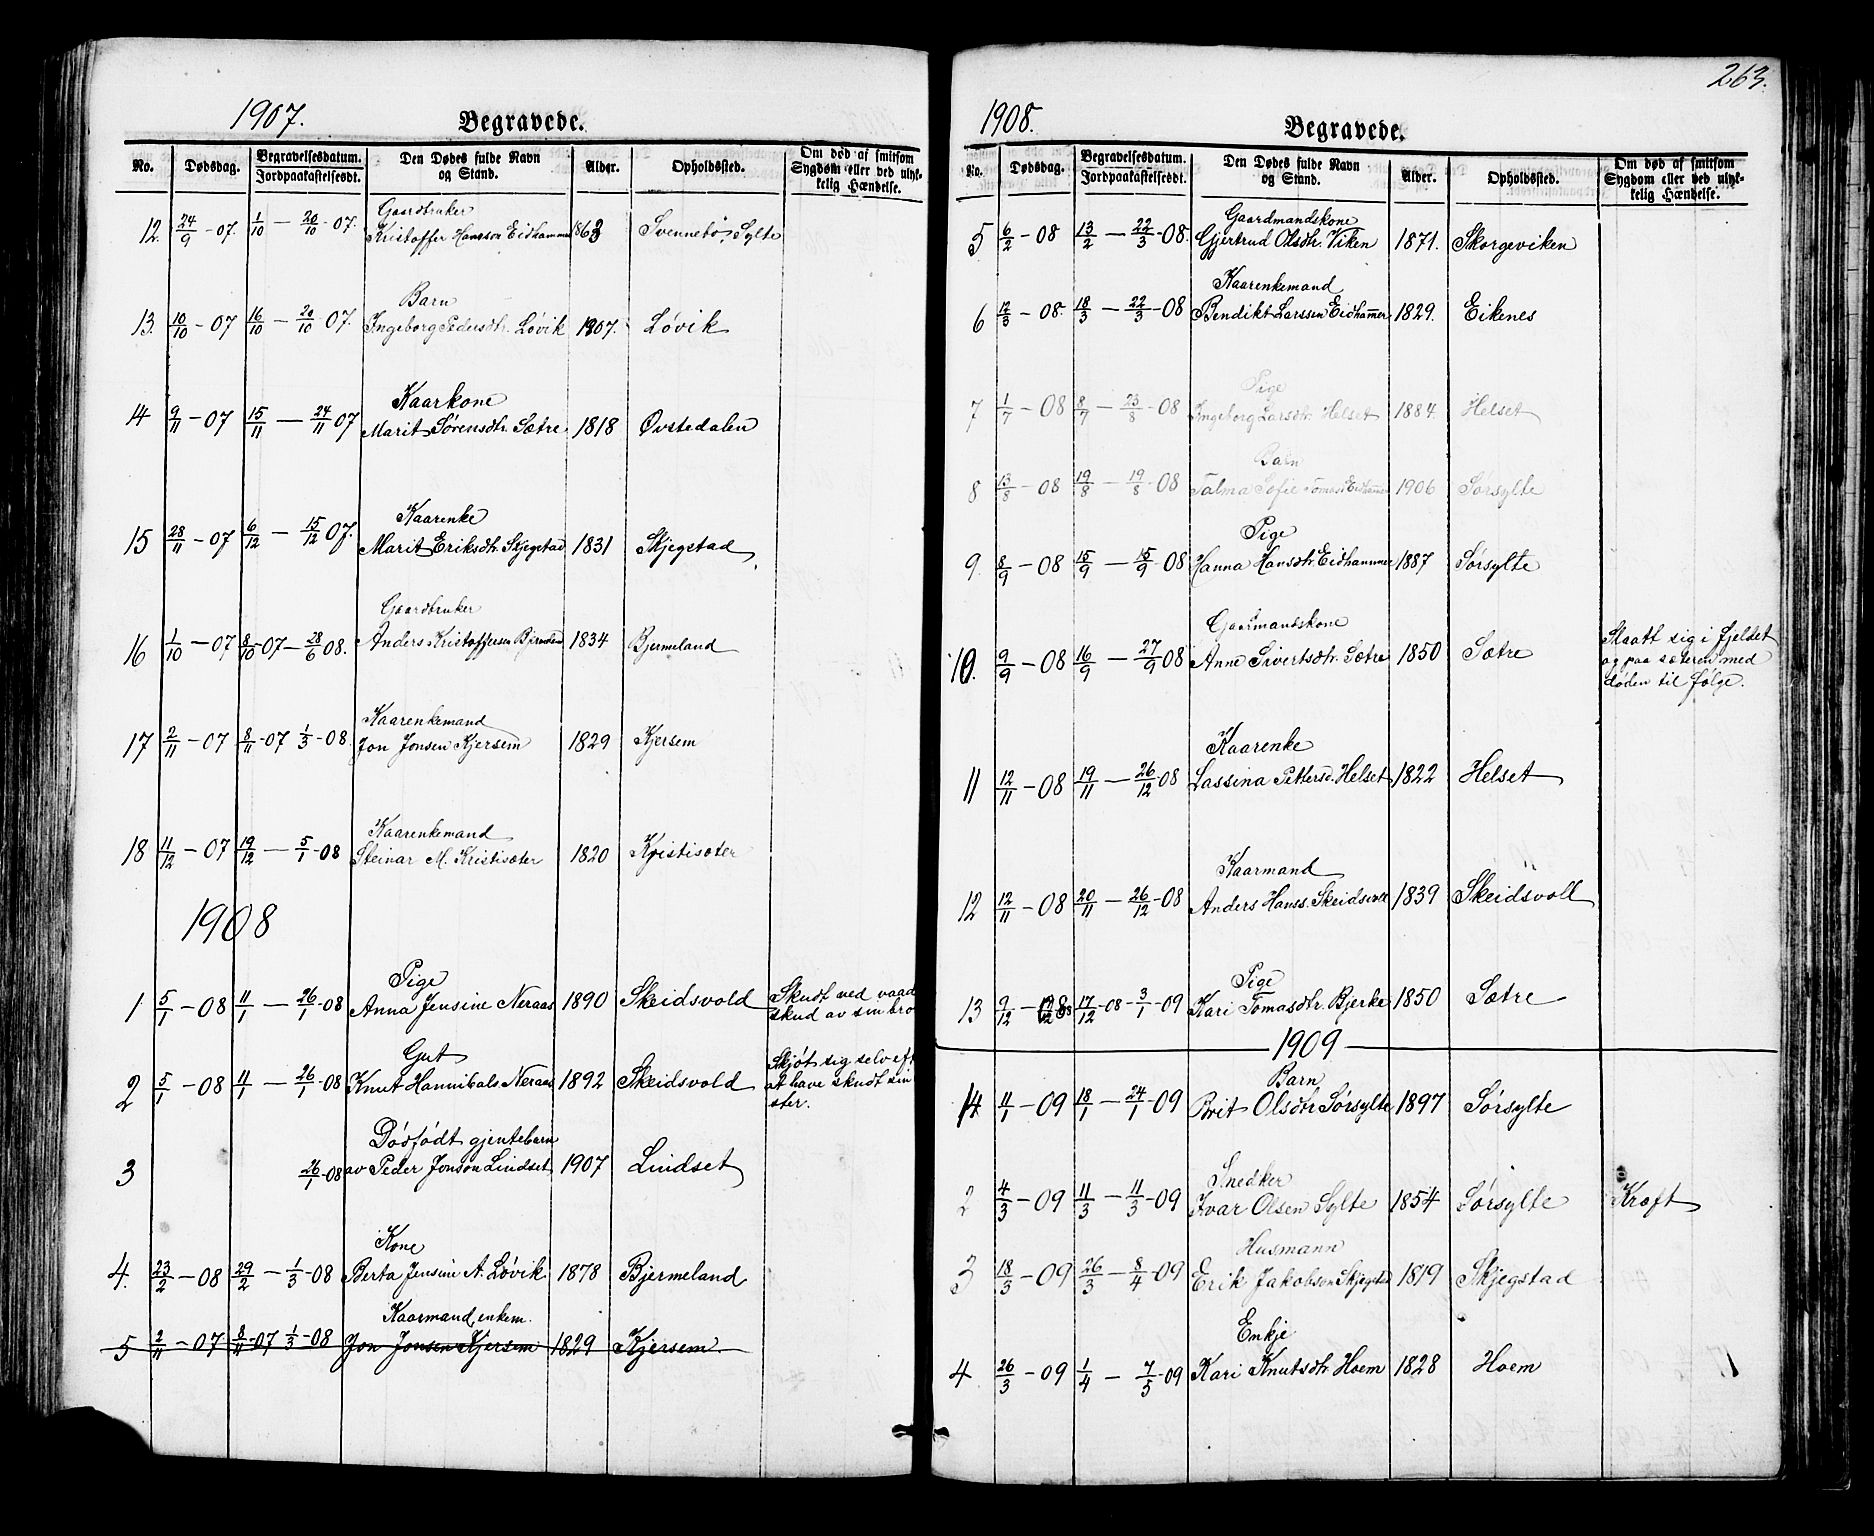 1907.
Begravede.
No. Dødsdag. Begravelsesdatum. Jordpaakastelsesdt. Den Dødes fulde Navn og Stand. Alder. Opholdssted. Om død af smitsom Sygdom eller ved ulyk- kelig Hændelse.
Gaardbruker
12. 24/9 - 07. 1/10 — 20/10 - 07. Kristoffer Hansson Eidhammer 1863 Svennebø, Sylte
Barn
13. 10/10 - 07 16/10 — 20/10 07. Ingeborg Pedersdtr. Løvik 1907. Løvik
Kaarkone
14 9/11 - 07 15/11 — 24/11 07 Marit Sørensdtr. Sætre 1818 Øvstedalen
Kaarenke
15 28/11 - 07 6/12 — 15/12 07. Marit Eriksdtr. Skjegstad 1831 Skjegstad
Gaardbruker
16 1/10 - 07 8/10 07 - 28/6 08. Anders Kristoffersen 1834 Bjermeland
Kaarenkemand
17 2/11 - 07 8/11 - 07 1/3 - 08 Jon Jonsen Kjersem 1829 Kjersem
Kaarenkemand
18 11/12 - 07 19/12 — 5/1 - 08 Steinar M. Kristisæter 1820 Kristisæter
1908
Pige
1 5/1 - 08 11/1 — 26/1 - 08 Anna Jensine Neraas 1890 Skeidsvold Skudt ved vaad
skud av sin bro
Gut
2 5/1 - 08 11/1 — 26/1 - 08 Knut Hannibals. Neraas 1892 Skeidsvold Skjøt sig selv eft
at have skudt sin
ster.
Dødfødt gjentebarn
3 26/1 - 08 av Peder Jonson Lindset 1907 Lindset
Kone
4. 23/2 - 08 29/2 — 1/3 - 08 Berta Jensine A. Løvik 1878 Bjermeland
Kaarmand, enkem.
5 2/11 - 07 8/11 - 07 1/3 - 08 Jon Jonsen Kjersem 1829 Kjersem
263.
1908.
Begravede.
No. Dødsdag. Begravelsesdatum. Jordpaakastelsesdt. Den Dødes fulde Navn og Stand. Alder. Opholdssted. Om død af smitsom Sygdom eller ved ulyk- kelig Hændelse.
Gaardmandskone
5 6/2 - 08 13/2 — 22/3 - 08. Gjertrud Olsdtr. Viken 1871. Skorgeviken
Kaarenkemand
6 12/3 - 08. 18/3 — 22/3 - 08 Bendikt Larssen Eidhammer 1829. Eikenes
Pige
7 1/7 - 08 8/7 — 23/8 - 08 Ingeborg Larsdtr. Helset 1884. Helset
Barn
8 13/8 - 08 19/8 — 19/8 - 08 Talma Sofie Tomasd. Eidhammer 1906 Sørsylte
Pige
9. 8/9 - 08 15/9 — 15/9 08 Hanna Hansdtr. Eidhammer 1887 Sørsylte
Gaarmandskone
10. 9/9 - 08 16/9 — 27/9 08 Anne Sivertsdtr. Sætre 1850 Sætre Slaatt sig i fjeldet
og paa sæteren med
døden til følge.
Kaarenke
11 12/11 - 08 19/11 — 26/12 - 08 Lassina Pettersd. Helset 1822 Helset
Kaarmand
12 12/11 - 08 20/11 — 26/12 - 08 Anders Hanss. Skeidsvoll 1839 Skeidsvoll
Pige
13 9/12 - 08 17/12 - 08 - 3/1 - 09 Kari Tomasdtr. Bjerke 1850 Sætre
1909
Barn
1 11/1 - 09 18/1 — 24/1 - 09 Brit Olsdtr Sørsylte 1897 Sørsylte
Snedker
2 4/3 - 09 11/3 — 11/3 - 09 Ivar Olsen Sylte 1854 Sørsylte Kræft
Husmann
3 18/3 - 09 26/3 — 8/4 - 09 Erik Jakobson Skjegstad 1819 Skjegstad
Enkje
4 26/3 - 09 1/4 — 7/5 - 09 Kari Knutsdtr Hoem 1828 Hoem